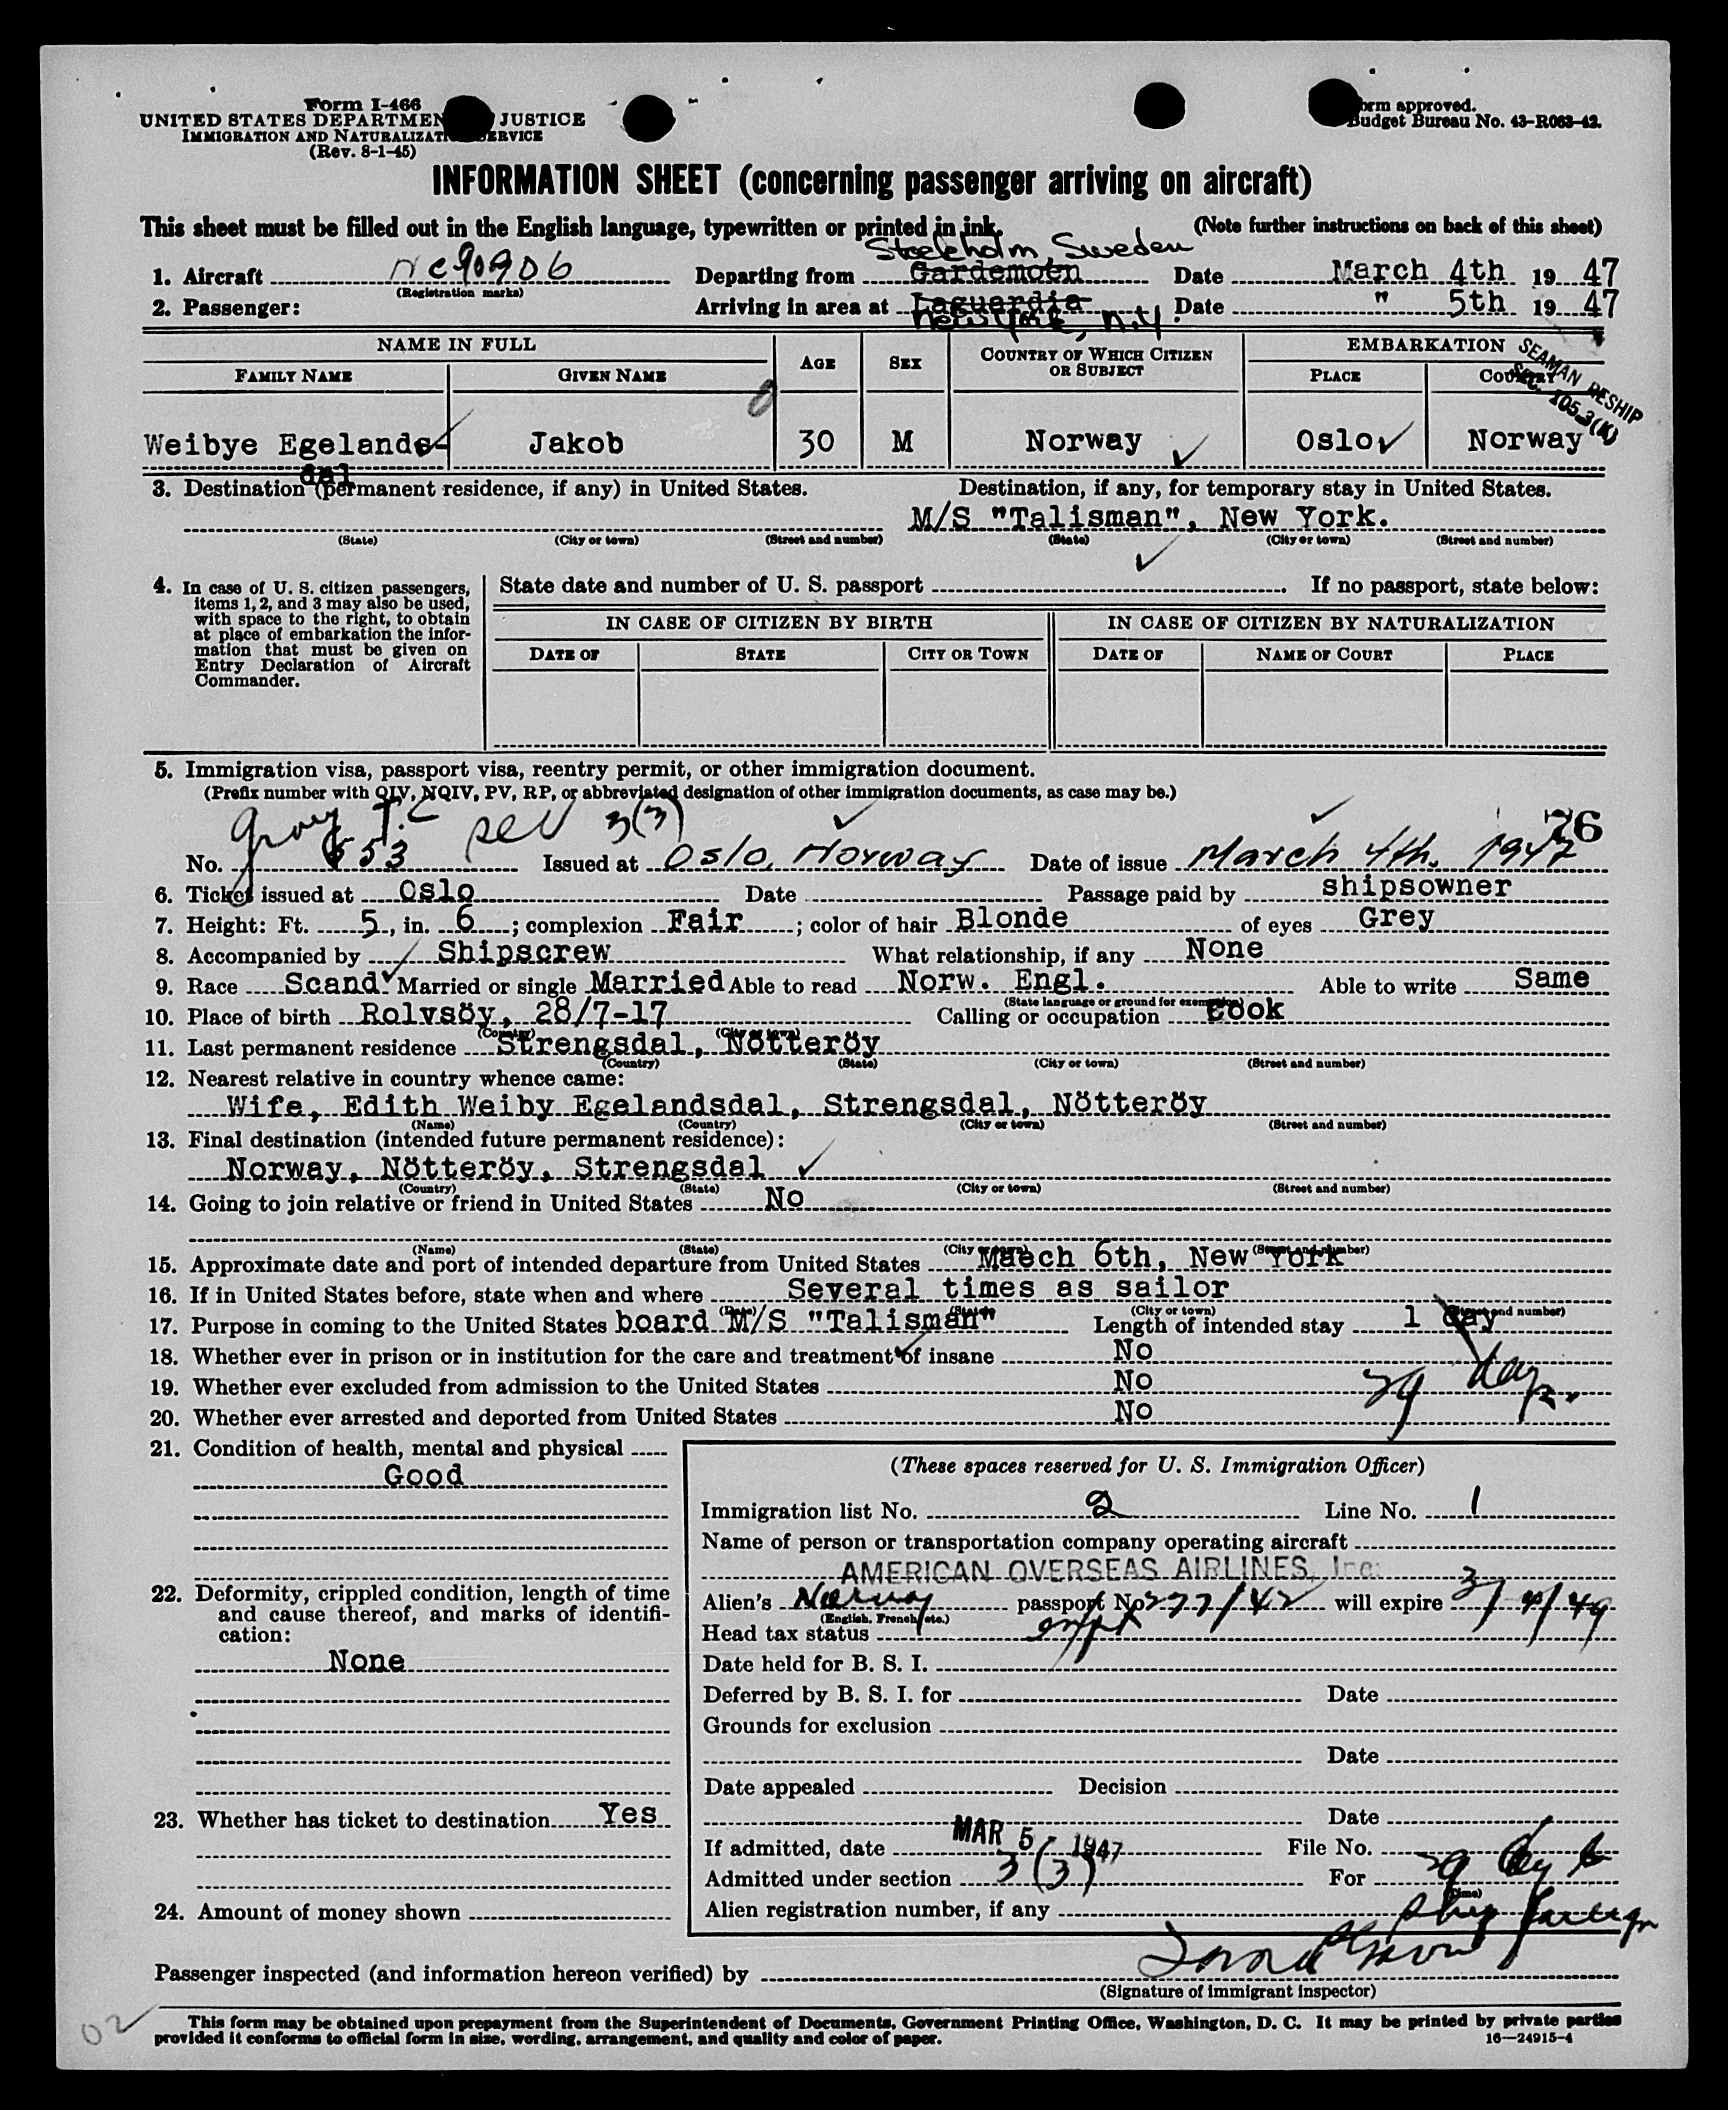 Form I-466
UNITED STATES DEPARTMENT JUSTICE
IMMIGRATION AND NATURALIZATION SERVICE
(Rev. 8-1-45)
Form approved.
Budget Bureau No. 43-R063-42.
INFORMATION SHEET (concerning passenger arriving on aircraft)
This sheet must be filled out in the English language, typewritten or printed in ink. (Note further instructions on back of this sheet)
Stockholm, Sweden
1. Aircraft NC90906 Departing from Gardemoen Date March 4th 1947
(Registration marks)
2. Passenger: Arriving in area at Laguardia Date " 5th 1947
New York, N.Y.
NAME IN FULL AGE SEX COUNTRY OF WHICH CITIZEN OR SUBJECT EMBARKATION
FAMILY NAME GIVEN NAME PLACE COUNTRY
SEAMAN RESHIP
SEC. 105.3(K)
Weibye Egelands- Jakob 30 M Norway Oslo Norway
dal
3. Destination (permanent residence, if any) in United States. Destination, if any, for temporary stay in United States.
M/S "Talisman", New York.
(State) (City or town) (Street and number) (State) (City or town) (Street and number)
4. In case of U. S. citizen passengers, items 1, 2, and 3 may also be used, with space to the right, to obtain at place of embarkation the information that must be given on Entry Declaration of Aircraft Commander.
State date and number of U. S. passport . If no passport, state below:
IN CASE OF CITIZEN BY BIRTH IN CASE OF CITIZEN BY NATURALIZATION
DATE OF STATE CITY OR TOWN DATE OF NAME OF COURT PLACE
5. Immigration visa, passport visa, reentry permit, or other immigration document.
(Prefix number with QIV, NQIV, PV, RP, or abbreviated designation of other immigration documents, as case may be.)
3(3) 76
No. 653 Issued at Oslo, Norway Date of issue March 4th. 1947
6. Ticket issued at Oslo Date Passage paid by shipsowner
7. Height: Ft. 5, in. 6; complexion Fair; color of hair Blonde of eyes Grey
8. Accompanied by Shipscrew What relationship, if any None
9. Race Scand Married or single Married Able to read Norw. Engl. Able to write Same
(State language or ground for exemption)
10. Place of birth Rolvsöy, 28/7-17 Calling or occupation cook
(Country) (City or town)
11. Last permanent residence Strengsdal, Nötteröy
(Country) (State) (City or town) (Street and number)
12. Nearest relative in country whence came:
Wife, Edith Weiby Egelandsdal, Strengsdal, Nötteröy
(Name) (Country) (City or town) (Street and number)
13. Final destination (intended future permanent residence):
Norway, Nötteröy, Strengsdal
(Country) (State) (City or town) (Street and number)
14. Going to join relative or friend in United States No
(Name) (State) (City or town) (Street and number)
15. Approximate date and port of intended departure from United States Maech 6th, New York
16. If in United States before, state when and where Several times as sailor
(Date) (State) (City or town) (Street and number)
17. Purpose in coming to the United States board M/S "Talisman" Length of intended stay 1 day
18. Whether ever in prison or in institution for the care and treatment of insane No
29 days
19. Whether ever excluded from admission to the United States No
20. Whether ever arrested and deported from United States No
21. Condition of health, mental and physical
Good
22. Deformity, crippled condition, length of time and cause thereof, and marks of identification:
None
23. Whether has ticket to destination Yes
24. Amount of money shown
(These spaces reserved for U. S. Immigration Officer)
Immigration list No. 2 Line No. 1
Name of person or transportation company operating aircraft
AMERICAN OVERSEAS AIRLINES, Inc.
Alien's Norway passport No 277/42 will expire 3/4/49
(English, French, etc.)
Head tax status
Date held for B. S. I.
Deferred by B. S. I. for Date
Grounds for exclusion
Date
Date appealed Decision
Date
If admitted, date MAR 5 - 1947 File No.
Admitted under section 3(3) For 29
(Time)
Alien registration number, if any
Passenger inspected (and information hereon verified) by
(Signature of immigrant inspector)
02
This form may be obtained upon prepayment from the Superintendent of Documents, Government Printing Office, Washington, D. C. It may be printed by private parties
provided it conforms to official form in size, wording, arrangement, and quality and color of paper. 16—24915-4